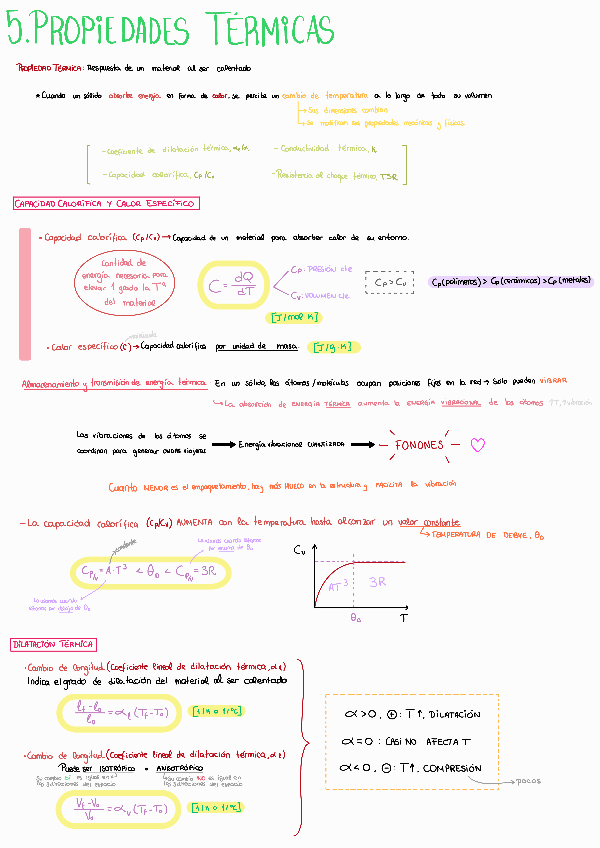 5. PROPIEDADES TÉRMICAS
PROPIEDAD TÉRMICA: Respuesta de un material al ser calentado
* Cuando un sólido absorbe energía en forma de calor, se percibe un cambio de temperatura a lo largo de todo su volumen
→ Sus dimensiones cambian
→ Se modifican sus propiedades mecánicas y físicas
- Coeficiente de dilatación térmica,
- Conductividad térmica, K
- Capacidad calorífica, Cp/Cv
- Resistencia al choque térmico, TSR
CAPACIDAD CALORÍFICA Y CALOR ESPECÍFICO
- Capacidad calorífica (Cp/Cv) → Capacidad de un material para absorber calor de su entorno.
Cantidad de
energía necesaria para
elevar 1 grado la Tª
del material
C = dQ/dT
Cp: PRESIÓN cte
Cv: VOLUMEN cte
Cp > Cv
Cp(polímeros) > Cp(cerámicos) > Cp(metales)
[J/mol·K]
- Calor específico (c) → Capacidad calorífica por unidad de masa. [J/g·K]
Almacenamiento y transmisión de energía térmica
En un sólido, los átomos/moléculas ocupan posiciones fijas en la red → Sólo pueden VIBRAR
→ La absorción de ENERGÍA TÉRMICA aumenta la ENERGÍA VIBRACIONAL de los átomos ↑T, ↑vibración
Las vibraciones de los átomos se
coordinan para generar ondas viajeras
→ Energía vibracional CUANTIZADA → FONONES ♡
Cuanto MENOR es el empaquetamiento, hay más HUECO en la estructura y FACILITA la vibración
- La capacidad calorífica (Cp/Cv) AUMENTA con la temperatura hasta alcanzar un valor constante
→ TEMPERATURA DE DEBYE, θD
constante
La usamos cuando estamos
por encima de θD
Cp/v = A·T³ < θD < Cp/v = 3R
La usamos cuando
estamos por debajo de θD
Cv
AT³
3R
θD
T
DILATACIÓN TÉRMICA
· Cambio de longitud (Coeficiente lineal de dilatación térmica, αℓ)
Indica el grado de dilatación del material al ser calentado
(ℓf - ℓ0)/ℓ0 = αℓ (Tf - T0)
[1/K o 1/ºC]
· Cambio de longitud (Coeficiente lineal de dilatación térmica, αℓ)
Puede ser ISOTRÓPICO o ANISOTRÓPICO
Su cambio es igual en
las 3 direcciones del espacio
Su cambio NO es igual en
las 3 direcciones del espacio
(Vf - V0)/V0 = αv (Tf - T0)
[1/K o 1/ºC]
α > 0, ⊕: T↑, DILATACIÓN
α = 0: CASI NO AFECTA T
α < 0, ⊖: T↑, COMPRESIÓN
→ pocos